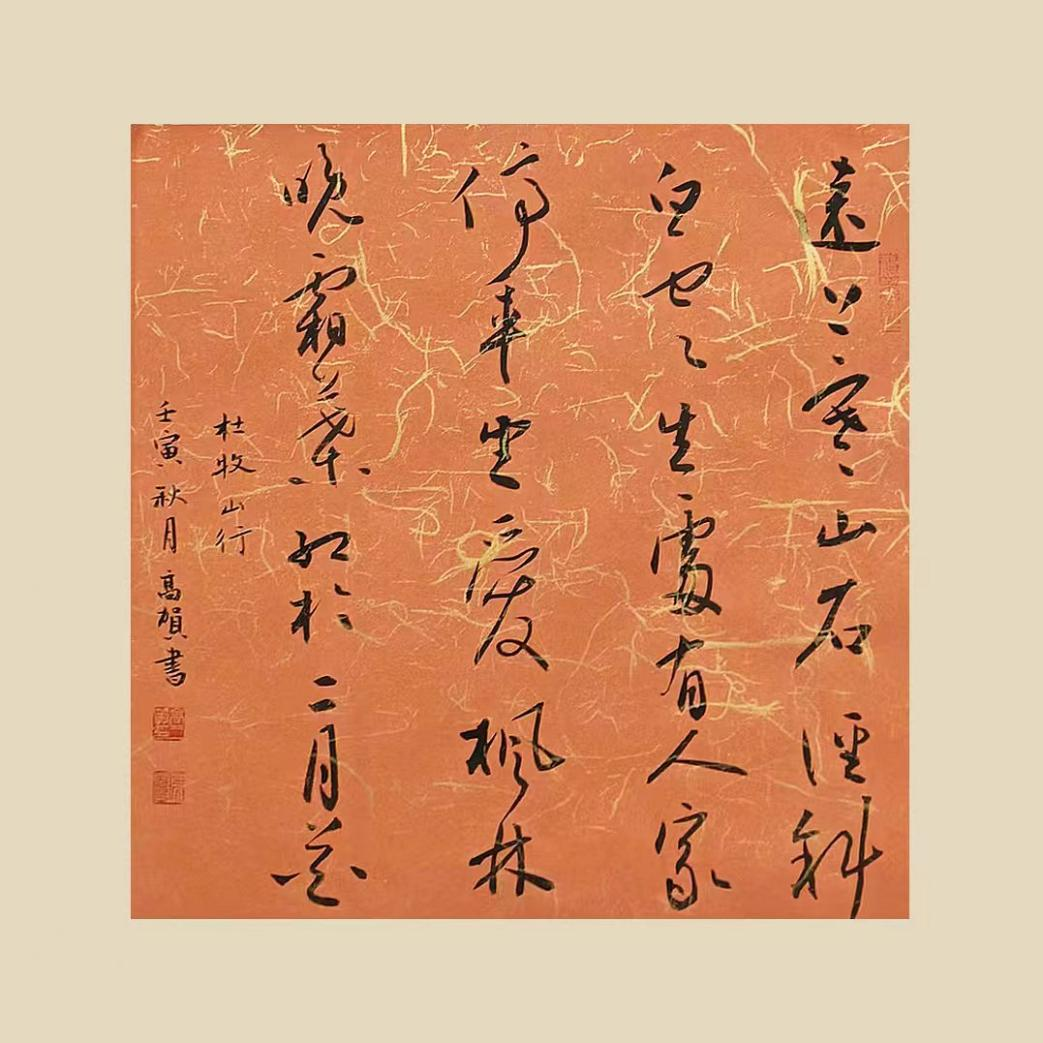 遠上寒山石徑斜
白云々生處有人家
停車坐愛楓林
晚霜葉紅於二月花
杜牧山行
壬寅秋月高賀書